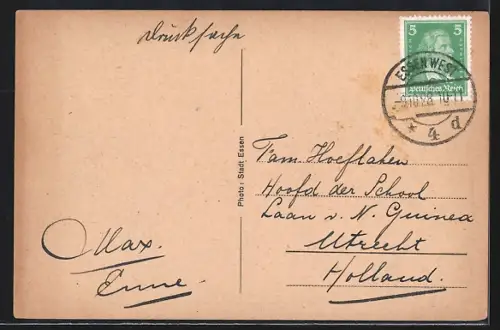 Drucksache
5 5
Deutsches Reich
ESSEN WEST
10-11
* 4 d
Photo: Stadt Essen
Fam. Hoeflaken
Hoofd der School
Laan v. N. Guinea
Utrecht
Holland.
Max.
Enne.